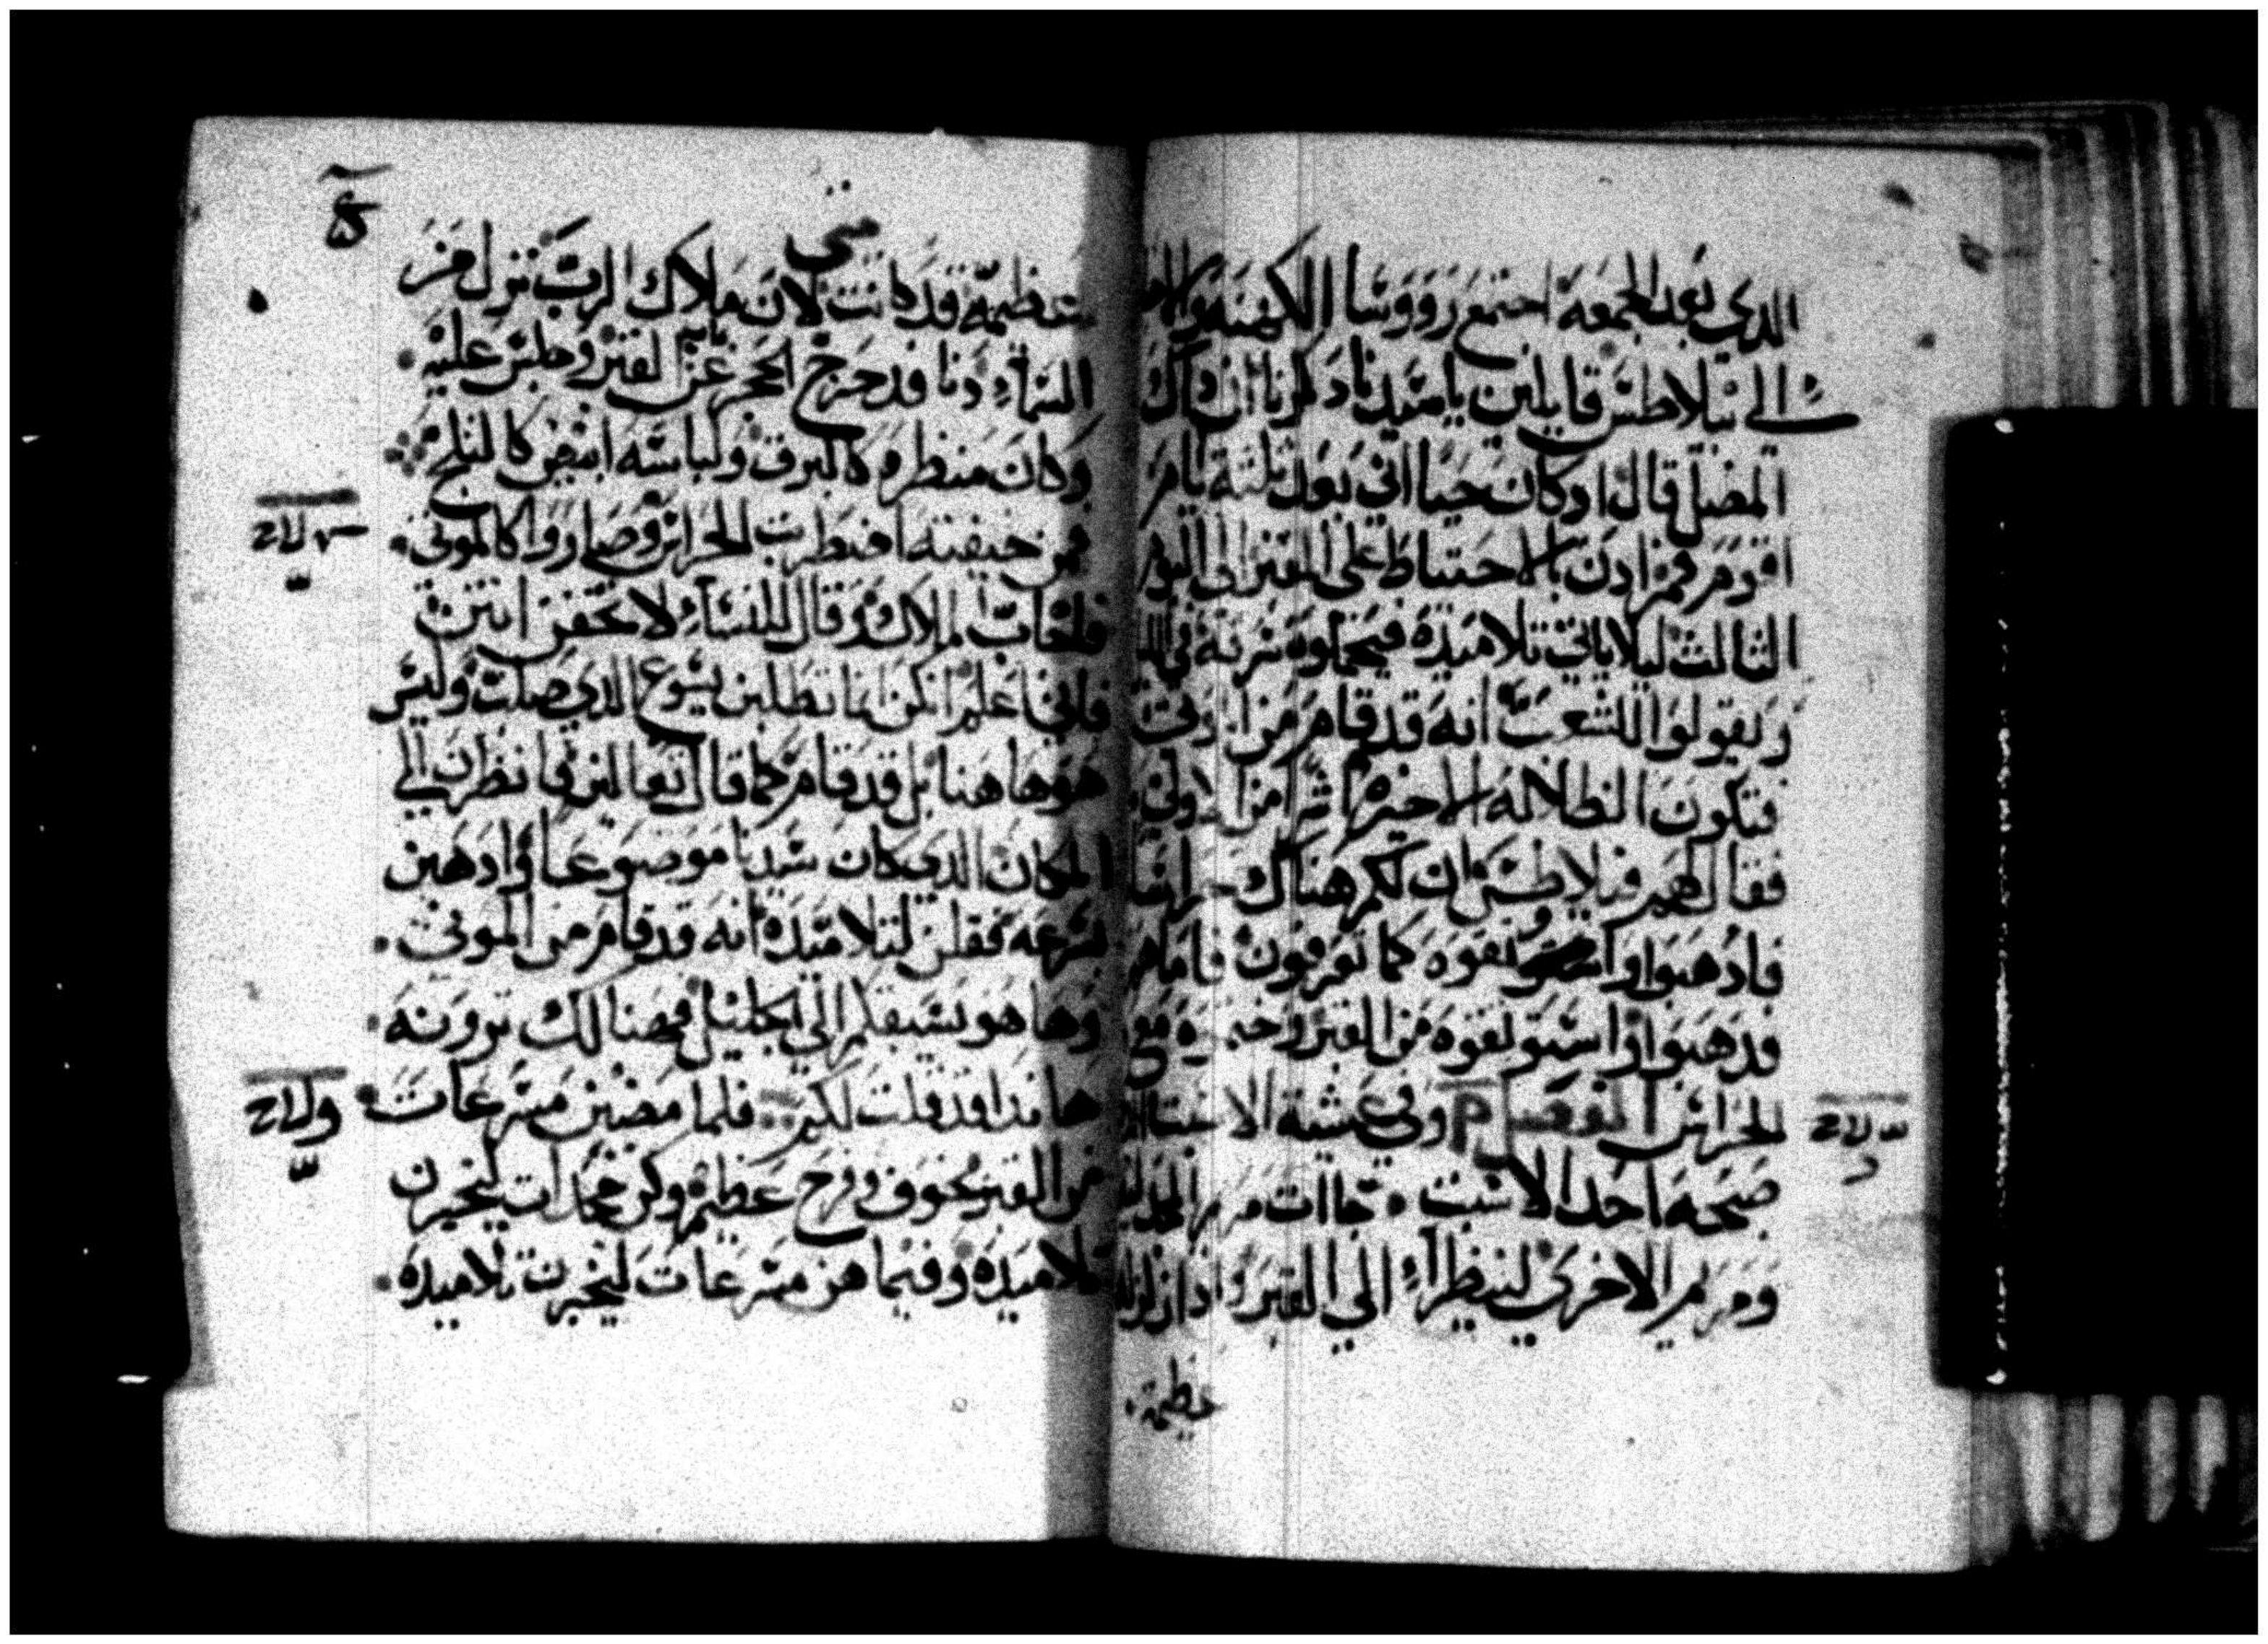 الدي بعد الجمعة اجتمع رووسا الكهنه
الي بيلاطس قايلين يا سيدنا دكرنا ان داك
المضل قال اد كان حيا اني بعد ثلثة ايام
اقوم فمر ادن بالاحتياط علي القبر الي اليوم
الثالث ليلا ياتي تلاميده فيحملوه سرقة في
ويقولوا للشعب انه قد قام من
فتكون الظلاله الاخيره اشر من الاولي
فقال لهم فيلاطس ان لكم هناك حراسا
فادهبوا و كما تعرفون فاما هم
فدهبوا واستوتقوه من القبر مع
الحراس وفي عشية الاسبت
صبحه احد الاسبت جاات مريم
ومريم الاخري لينظرا الي القبر وادا
عظيمة
متي
عظيمه قد كانت لان ملاك الرب نزل من
السماء ودنا فدحرج الحجر عن القبر وجلس عليه
وكان منظره كالبرق ولباسه ابيض كالثلج
فمن خيفته اضطربت الحراس وصاروا كالموتي
فاجاب الملاك وقال للنساء لا تخفن انتن
فاني اعلم انكن انما تطلبن يسوع الدي صلب وليس
هو هاهنا بل قد قام كما قال تعالين فانظرن الي
المكان الدي كان سيدنا موضوعا وادهبن
بسرعه فقلن لتلاميده انه قد قام من الموتي
وها هو يسبقكم الي الجليل فهنالك ترونه
هاندا قد قلت لكم فلما مضين مسرعات
من القبر بخوف وفرح عظيم وكن مجدات ليخبرن
تلاميده وفيما هن مسرعات ليخبرن تلاميده